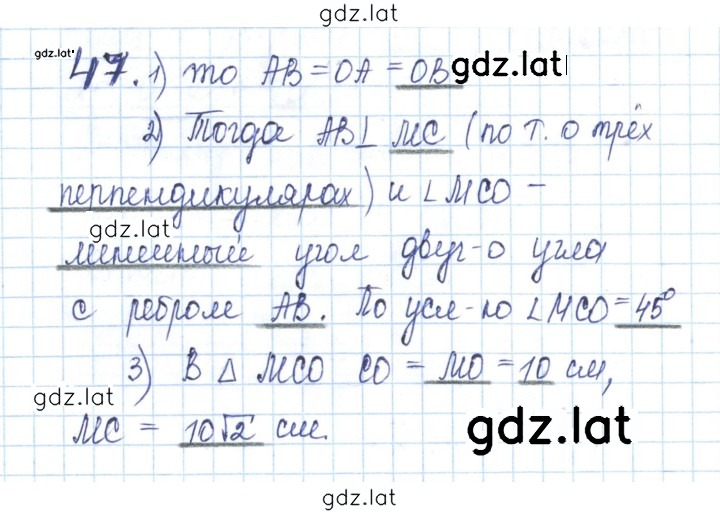 gdz.lat
gdz.lat
47. 1) то AB = OA = OB gdz.lat
2) Тогда AB⊥ MC (по т. о трёх
перпендикулярах) и ∠MCO –
gdz.lat
линейный угол двугр-о угла
с ребром AB. По усл-ю ∠MCO = 45°
3) В △ MCO CO = MO = 10 см,
gdz.lat
MC = 10√2 см.
gdz.lat
gdz.lat